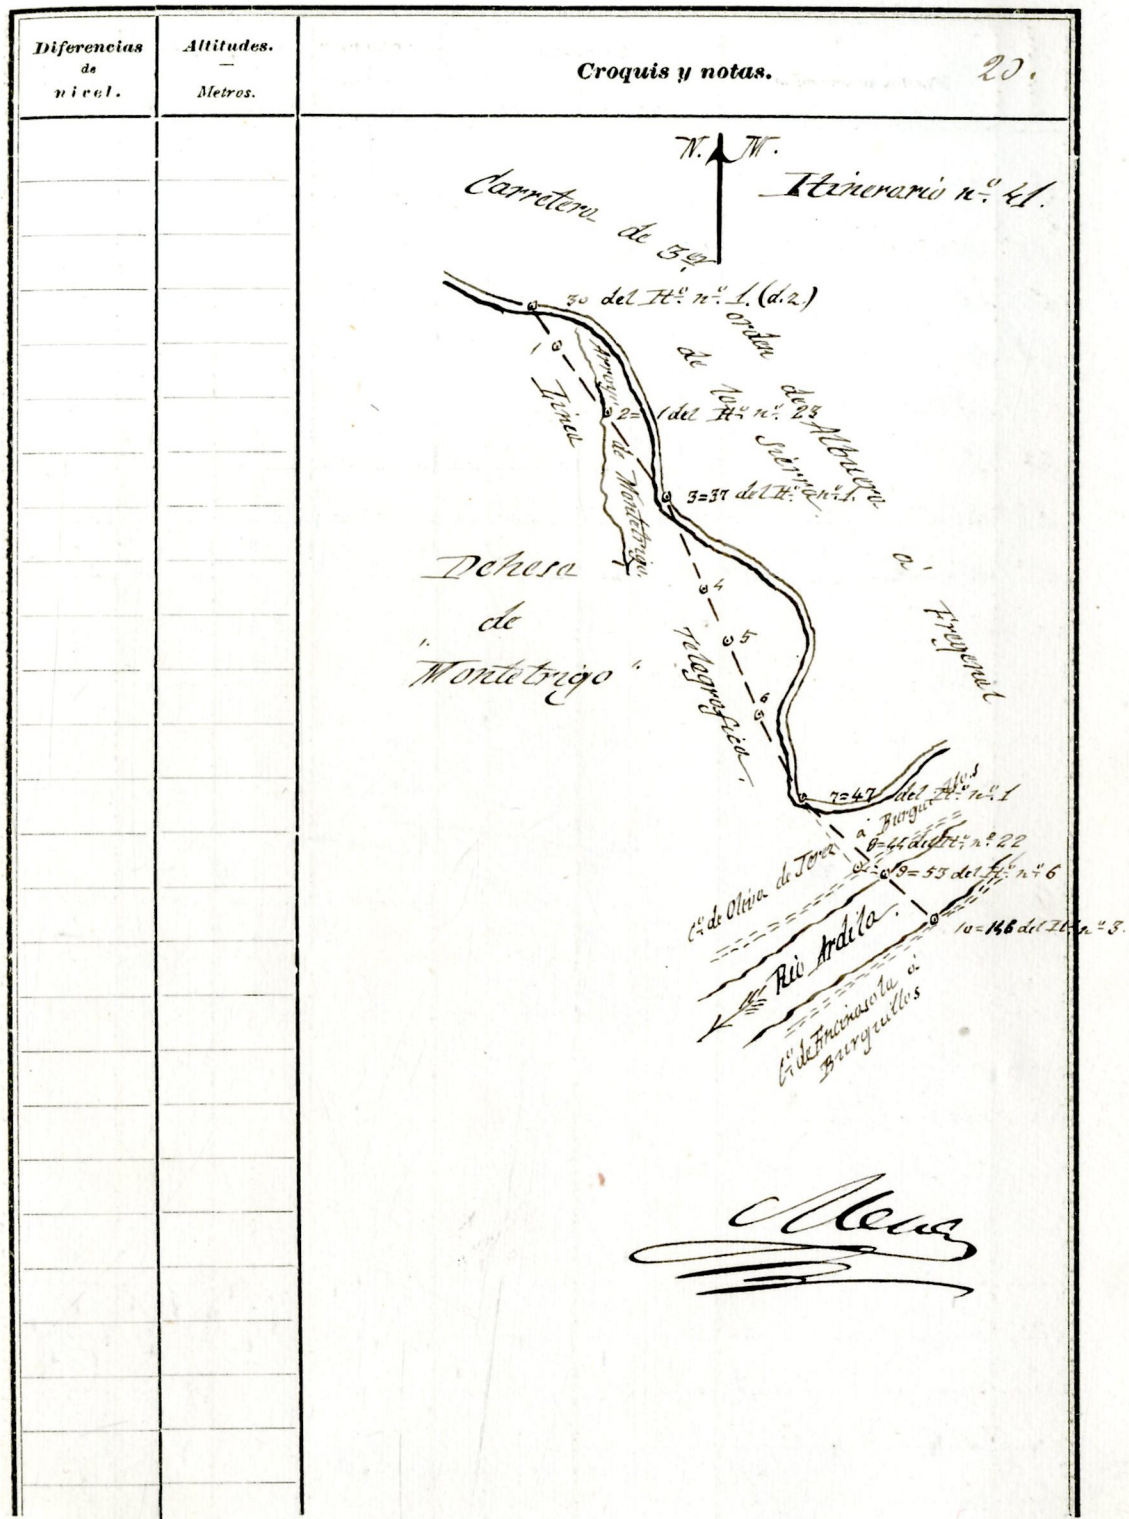 Diferencias
de
nivel.
Altitudes.
Metros.
Croquis y notas.
20.
N. M.
Itinerario nº 41.
Carretera de 3er
orden de Albuera
de los
Sierra
á Fregenal
30 del Itº nº 1. (d.2.)
1
Linea
Arroyo de Montetrigo.
2=1 del Itº nº 23
3=37 del Itº nº 1.
4
Dehesa
de
"Montetrigo"
5
Telegrafica.
6
7=47 del Itº nº 1
Cº de Oliva de Jerez á Burguillos
8=44 del Itº nº 22
9=53 del Itº nº 6
10=146 del Itº nº 3.
Rio Ardila.
Cº de Encinasola á
Burguillos
Mena